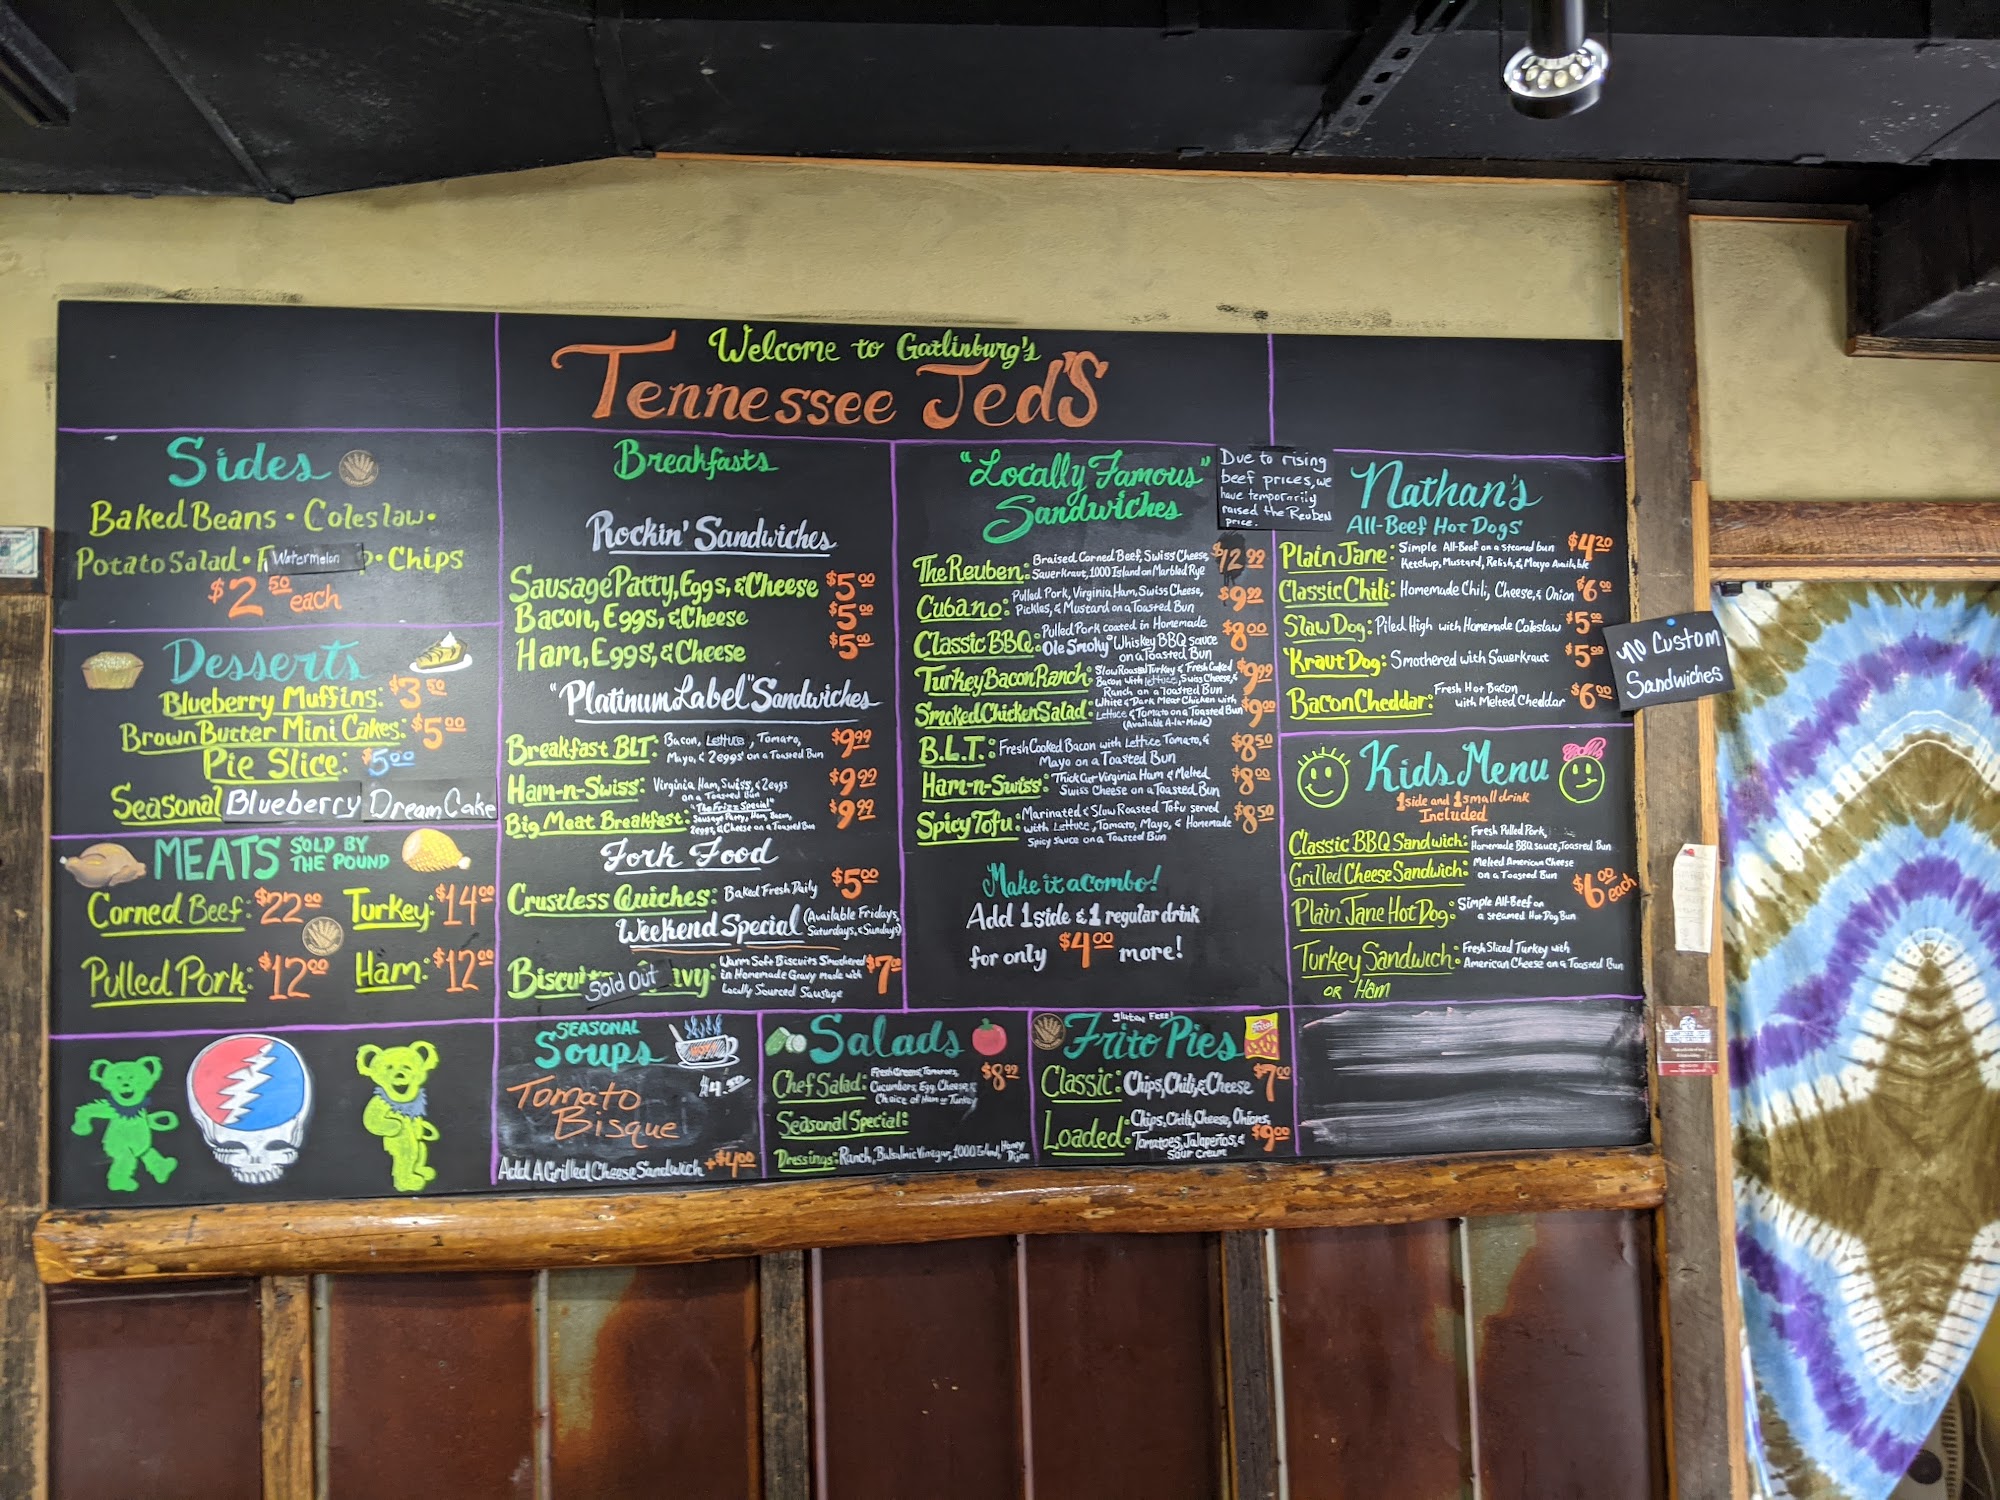 Welcome to Gatlinburg's
Tennessee Jed's
Sides
Baked Beans • Coleslaw •
Potato Salad • Watermelon • Chips
$2.50 each
Desserts
Blueberry Muffins: $3.50
Brown Butter Mini Cakes: $5.00
Pie Slice: $5.00
Seasonal Blueberry Dream Cake
MEATS SOLD BY
THE POUND
Corned Beef: $22.00 Turkey: $14.00
Pulled Pork: $12.00 Ham: $12.00
Breakfasts
Rockin' Sandwiches
Sausage Patty, Eggs, & Cheese $5.00
Bacon, Eggs, & Cheese $5.00
Ham, Eggs, & Cheese $5.00
"Platinum Label" Sandwiches
Breakfast BLT: Bacon, Lettuce, Tomato, $9.99
Mayo, & 2 eggs on a Toasted Bun
Ham-n-Swiss: Virginia Ham, Swiss, & 2 eggs $9.99
on a Toasted Bun
"The Frizz Special"
Big Meat Breakfast: Sausage Patty, Ham, Bacon, $9.99
2 eggs, & Cheese on a Toasted Bun
Fork Food
Crustless Quiches: Baked Fresh Daily $5.00
Weekend Special (Available Fridays,
Saturdays, & Sundays)
Biscu Sold Out avy: Warm Soft Biscuits Smothered $7.00
in Homemade Gravy made with
Locally Sourced Sausage
"Locally Famous"
Sandwiches
Due to rising
beef prices, we
have temporarily
raised the Reuben
price.
The Reuben: Braised Corned Beef, Swiss Cheese, $12.99
Sauerkraut, 1000 Island on Marbled Rye
Cubano: Pulled Pork, Virginia Ham, Swiss Cheese, $9.99
Pickles, & Mustard on a Toasted Bun
Classic BBQ: Pulled Pork coated in Homemade $8.00
"Ole Smoky" Whiskey BBQ sauce
on a Toasted Bun
Turkey Bacon Ranch: Slow Roasted Turkey & Fresh Cooked $9.99
Bacon with lettuce, Swiss Cheese, &
Ranch on a Toasted Bun
Smoked Chicken Salad: White & Dark Meat Chicken with $9.00
Lettuce & Tomato on a Toasted Bun
(Available A-la-Mode)
B.L.T.: Fresh Cooked Bacon with Lettice Tomato, & $8.50
Mayo on a Toasted Bun
Ham-n-Swiss: Thick Cut Virginia Ham & Melted $8.00
Swiss Cheese on a Toasted Bun
Spicy Tofu: Marinated & Slow Roasted Tofu served $8.50
with Lettuce, Tomato, Mayo, & Homemade
Spicy Sauce on a Toasted Bun
Make it a Combo!
Add 1 side & 1 regular drink
for only $4.00 more!
Nathan's
All-Beef Hot Dogs
Plain Jane: Simple All-Beef on a steamed bun $4.20
Ketchup, Mustard, Relish, & Mayo Available
Classic Chili: Homemade Chili, Cheese, & Onion $6.00
Slaw Dog: Piled High with Homemade Coleslaw $5.00
'Kraut Dog: Smothered with Sauerkraut $5.00
Bacon Cheddar: Fresh Hot Bacon $6.00
with Melted Cheddar
No Custom
Sandwiches
Kids Menu
1 side and 1 small drink
Included
Classic BBQ Sandwich: Fresh Pulled Pork,
Homemade BBQ sauce, Toasted Bun
Grilled Cheese Sandwich: Melted American Cheese
on a Toasted Bun
$6.00 each
Plain Jane Hot Dog: Simple All-Beef on
a steamed Hot Dog Bun
Turkey Sandwich: Fresh Sliced Turkey with
American Cheese on a Toasted Bun
OR Ham
SEASONAL
Soups
$4.50
Tomato
Bisque
Add A Grilled Cheese Sandwich +$4.00
Salads
Chef Salad: Fresh Greens, Tomatoes, $8.99
Cucumbers, Egg, Cheese, &
Choice of Ham or Turkey
Seasonal Special:
Dressings: Ranch, Balsalmic Vinegar, 1000 Island, Honey
Dijon
gluten Free!
Frito Pies
Fritos
Classic: Chips, Chili, & Cheese $7.00
Loaded: Chips, Chili, Cheese, Onions, $9.00
Tomatoes, Jalapeños, &
Sour Cream